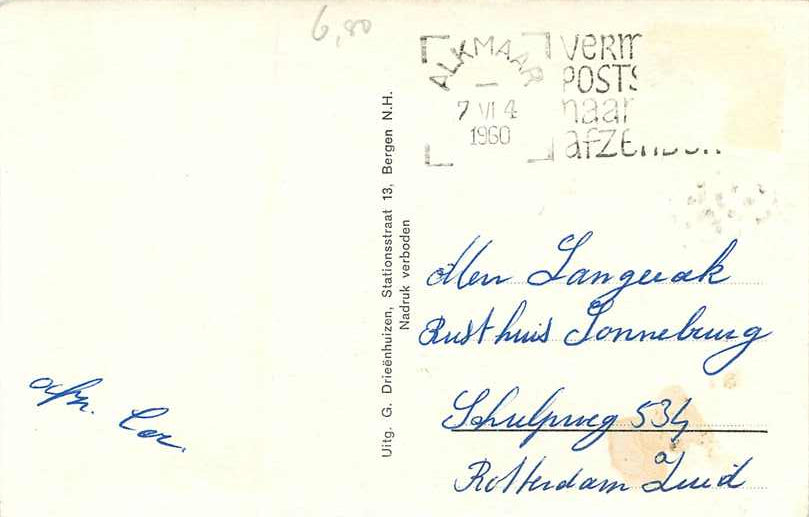 6,80
ALKMAAR
7 VI 4
1960
POSTS
naar
Uitg. G. Drieënhuizen, Stationsstraat 13, Bergen N.H.
Nadruk verboden
Langerak
Rusthuis Sonneburg
Schulpweg 534
a
Rotterdam Zuid
afz. Cor.